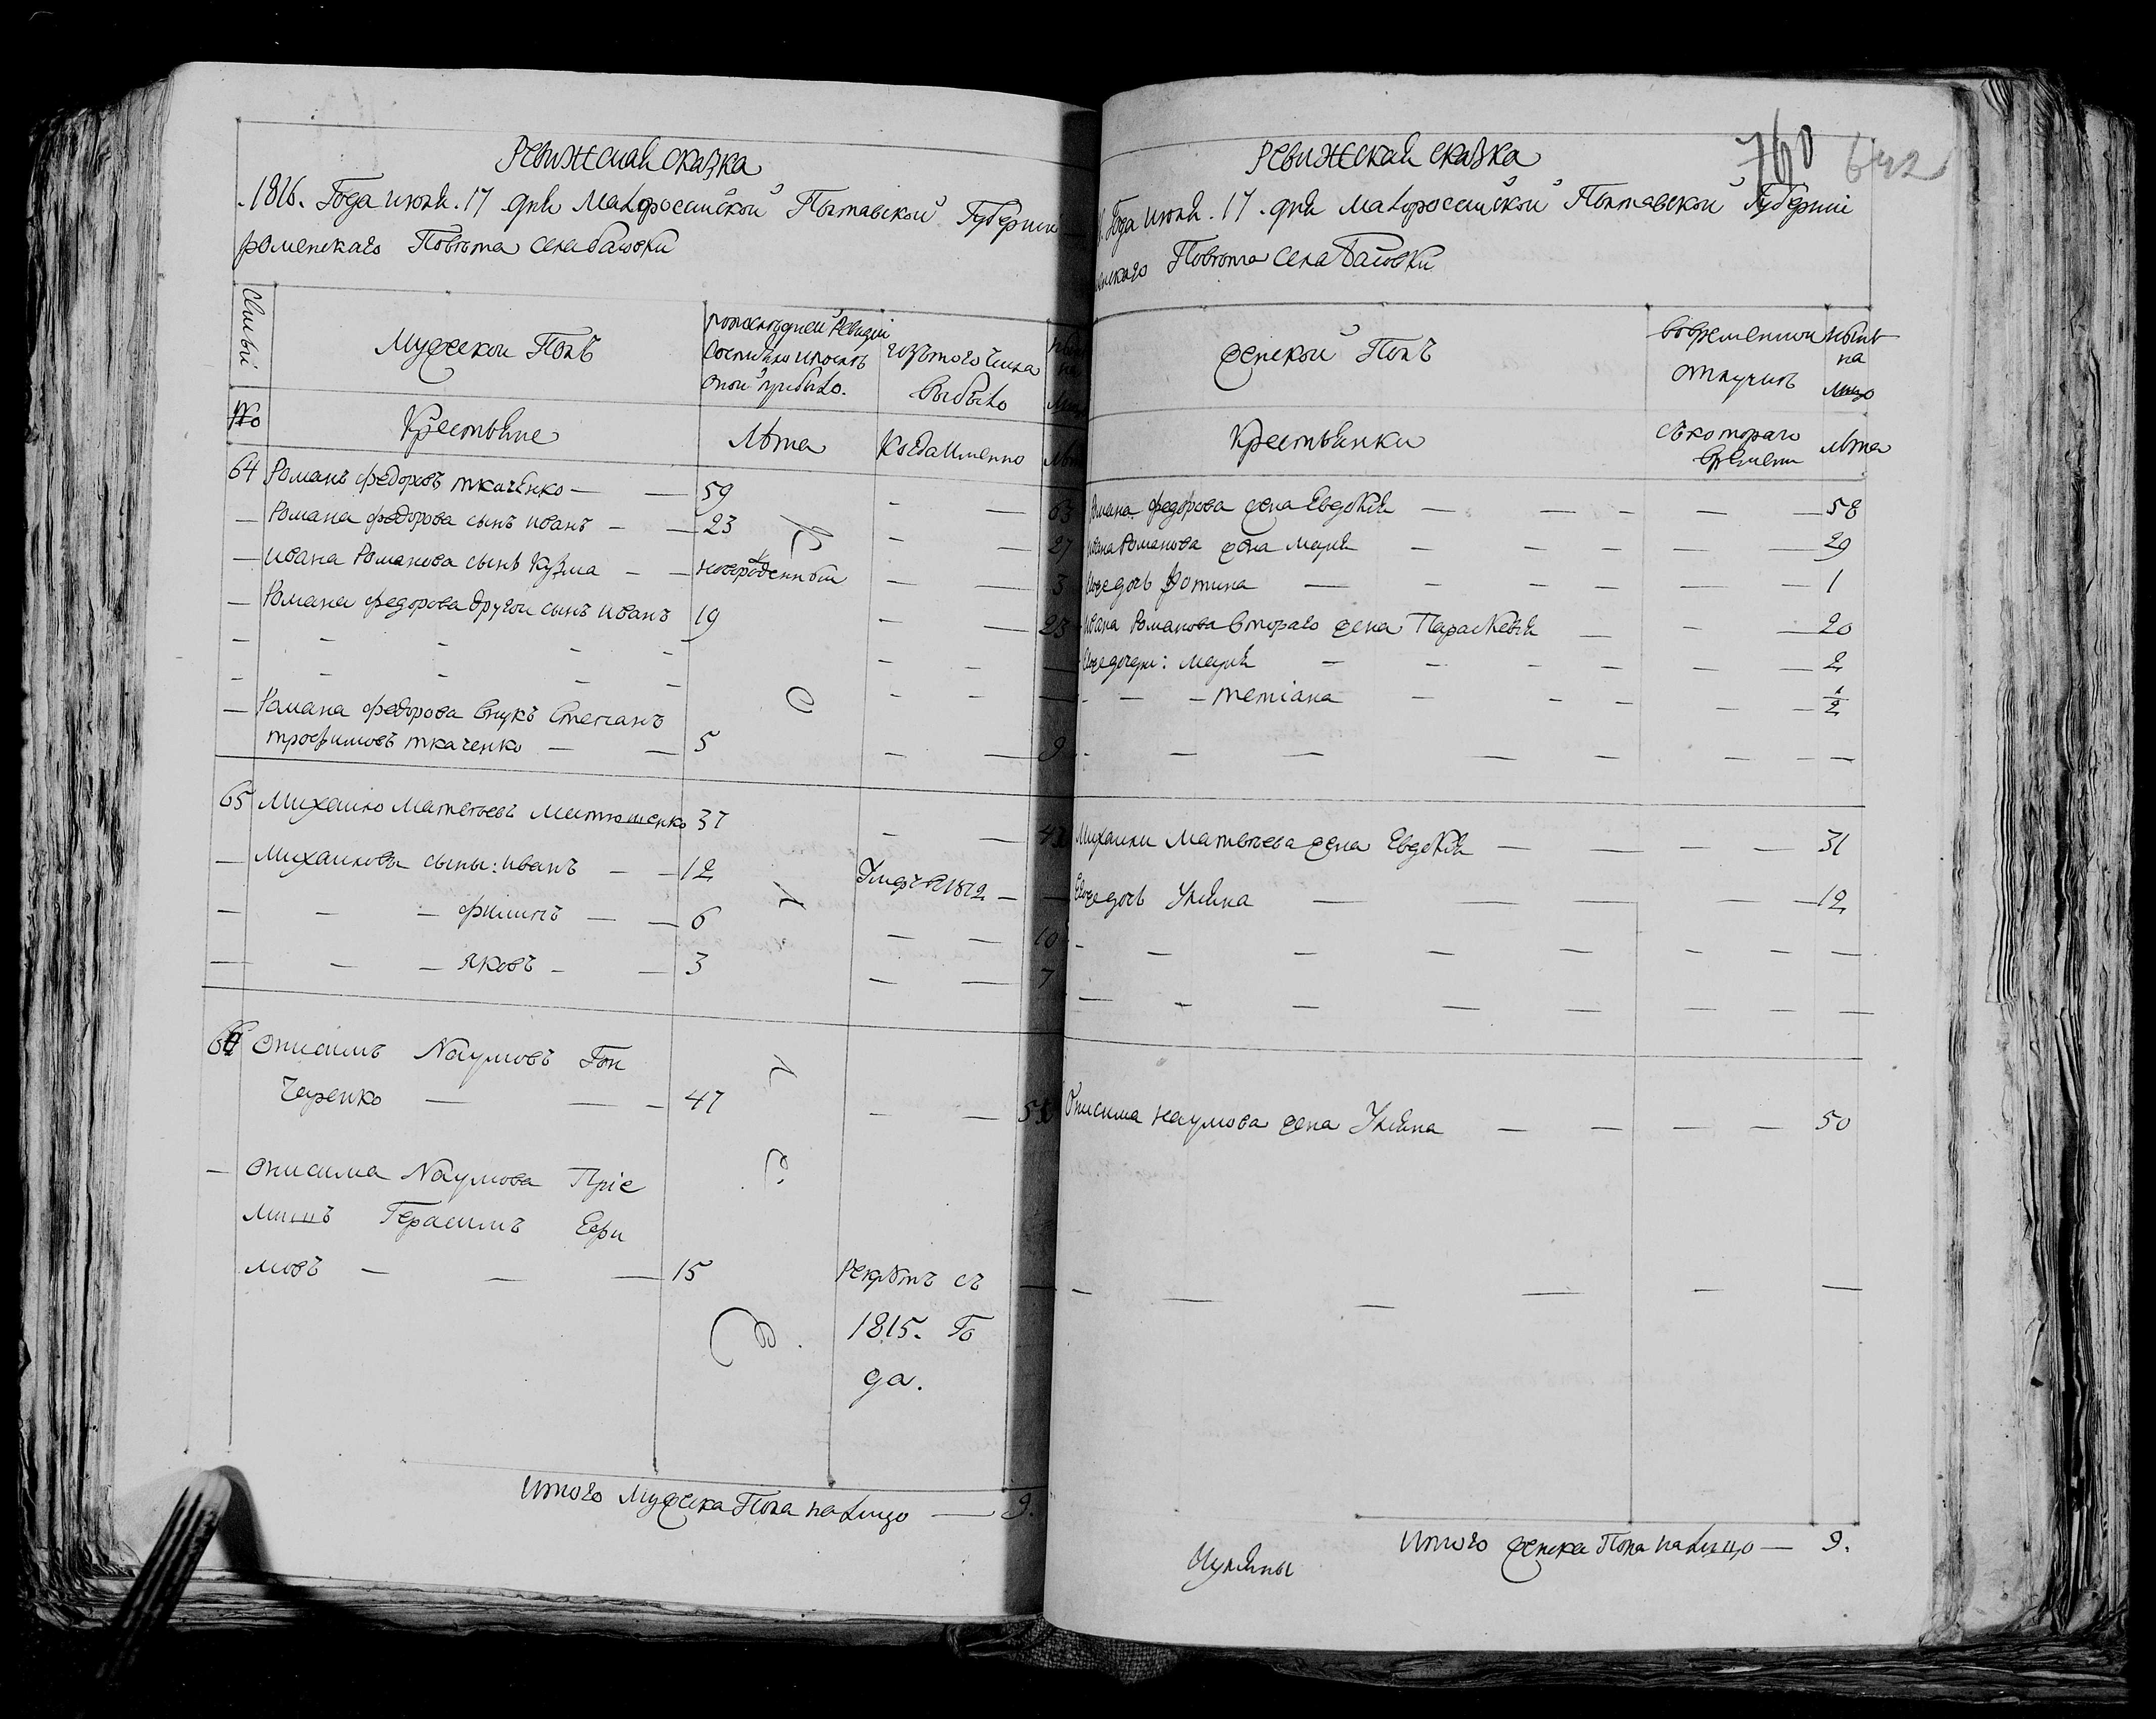 Ревижская сказка
1816. Года июля. 17 дня Малороссийской Полтавской Губернии
роменскаго Повѣта села баловки
Семьи
Мужеской Полъ
изъ того числа
выбыло
№
Крестьяне
Лѣта
Когда именно
64 Романъ федоровъ ткаченко — — 59 — — 63
— Романа федорова сынъ иванъ — — 23 — — 27
— ивана Романова сынъ Кузма — — новорожденный — — 3
— Романа федорова другой сынъ иванъ 19 — — 23
— Романа федорова внукъ Степанъ
трофимовъ ткаченко — — 5 — — 9
65 Михайло Матвѣевъ Матюшенко 37 — —
— Михайловы сыны: иванъ — — 12 1812 — —
— — — филипъ — — 6 — — 10
— — — яковъ — — 3 — — 7
66 Онисимъ Наумовъ Гон
чаренко — — — 47 — —
— Онисима Наумова Пріе
мышъ Герасимъ Ефи
мовъ — — — 15 Рекрутъ съ —
1815. Го
да.
Итого мужеска Пола налицо — 9.
760 642
Ревижская сказка
Года июля. 17. дня малороссийской Полтавской Губернии
Повѣта села баловки
женской Полъ
во временной
отлучкѣ
нынѣ
на
лицо
Крестьянки
съ котораго
времени
лѣта
Романа федорова жена Евдокія — — — — — 58
ивана Романова жена марія — — — — — 29
его дочь Фотина — — — — — 1
ивана Романова втораго жена Параскевія — — — 20
его дочери: марія — — — — — 2
— — — тетіана — — — — — 1/2
Михайли Матвѣева жена Евдокія — — — — 31
Его дочь Уляна — — — — — 12
Онисима наумова жена Уляна — — — — 50
Итого женска Пола налицо — 9.